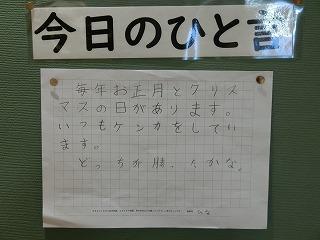 今日のひと言
毎年お正月とクリス
マスの日があります。
いつもケンカをしてい
ます。
どっちが勝ったかな。